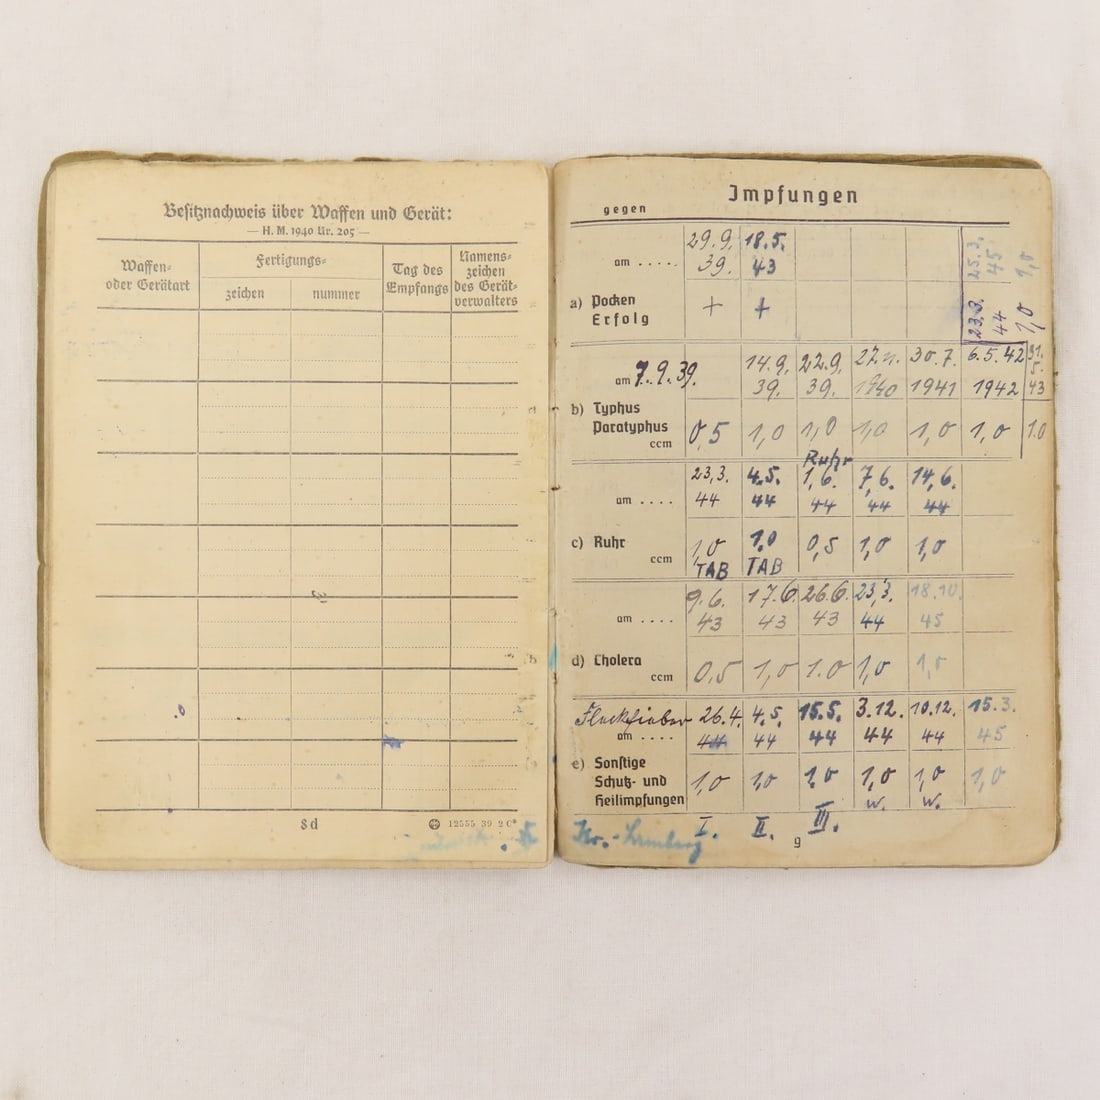 Besitznachweis über Waffen und Gerät:
— H. M. 1940 Nr. 205 —
Waffen- oder Gerätart
Fertigungs-
zeichen
nummer
Tag des Empfangs
Namens- zeichen des Gerät- verwalters
8d
12555 39 2 C
Impfungen
gegen
29.9. 39. 18.5. 43
am .....
25.3. 45 1,0
a) Pocken
Erfolg + +
23.3. 44 1,0
am 7.9.39. 14.9. 39. 22.9. 39. 1940 30.7. 1941 6.5.42 1942 31. 5. 43
b) Typhus
Paratyphus
ccm 0,5 1,0 1,0 1,0 1,0 1,0 1.0
Ruhr
am .... 23.3. 44 4.5. 44 1.6. 44 7.6. 44 14.6. 44
c) Ruhr
ccm 1,0 1,0 0,5 1,0 1,0
TAB TAB
am .... 9.6. 43 17.6. 43 26.6. 43 23.3. 44 18.10. 45
d) Cholera
ccm 0,5 1,0 1.0 1,0 1,0
Fleckfieber 26.4. 4.5. 15.5. 3.12. 10.12. 15.3.
am .... 44 44 44 44 44 45
e) Sonstige
Schutz- und
Heilimpfungen 1,0 1,0 1,0 1,0 1,0 1,0
w. w.
I. II. III.
9